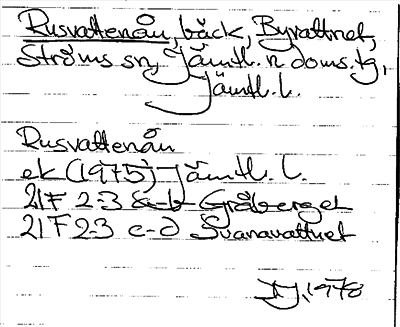 Rusvattenån, bäck, Byvattnet,
Ströms sn, Jämtl. n doms.tg,
Jämtl. l.
Rusvattenån
ek (1975) Jämtl. l.
21F 2-3 a-b Gråberget
21F 2-3 c-d Svanavattnet
1978